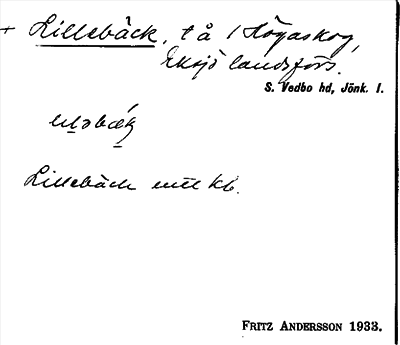 + Lillebäck, tå / Högaskog,
Eksjö landsförs.
S. Vedbo hd, Jönk. l.
Lillebäck enl kb.
FRITZ ANDERSSON 1933.